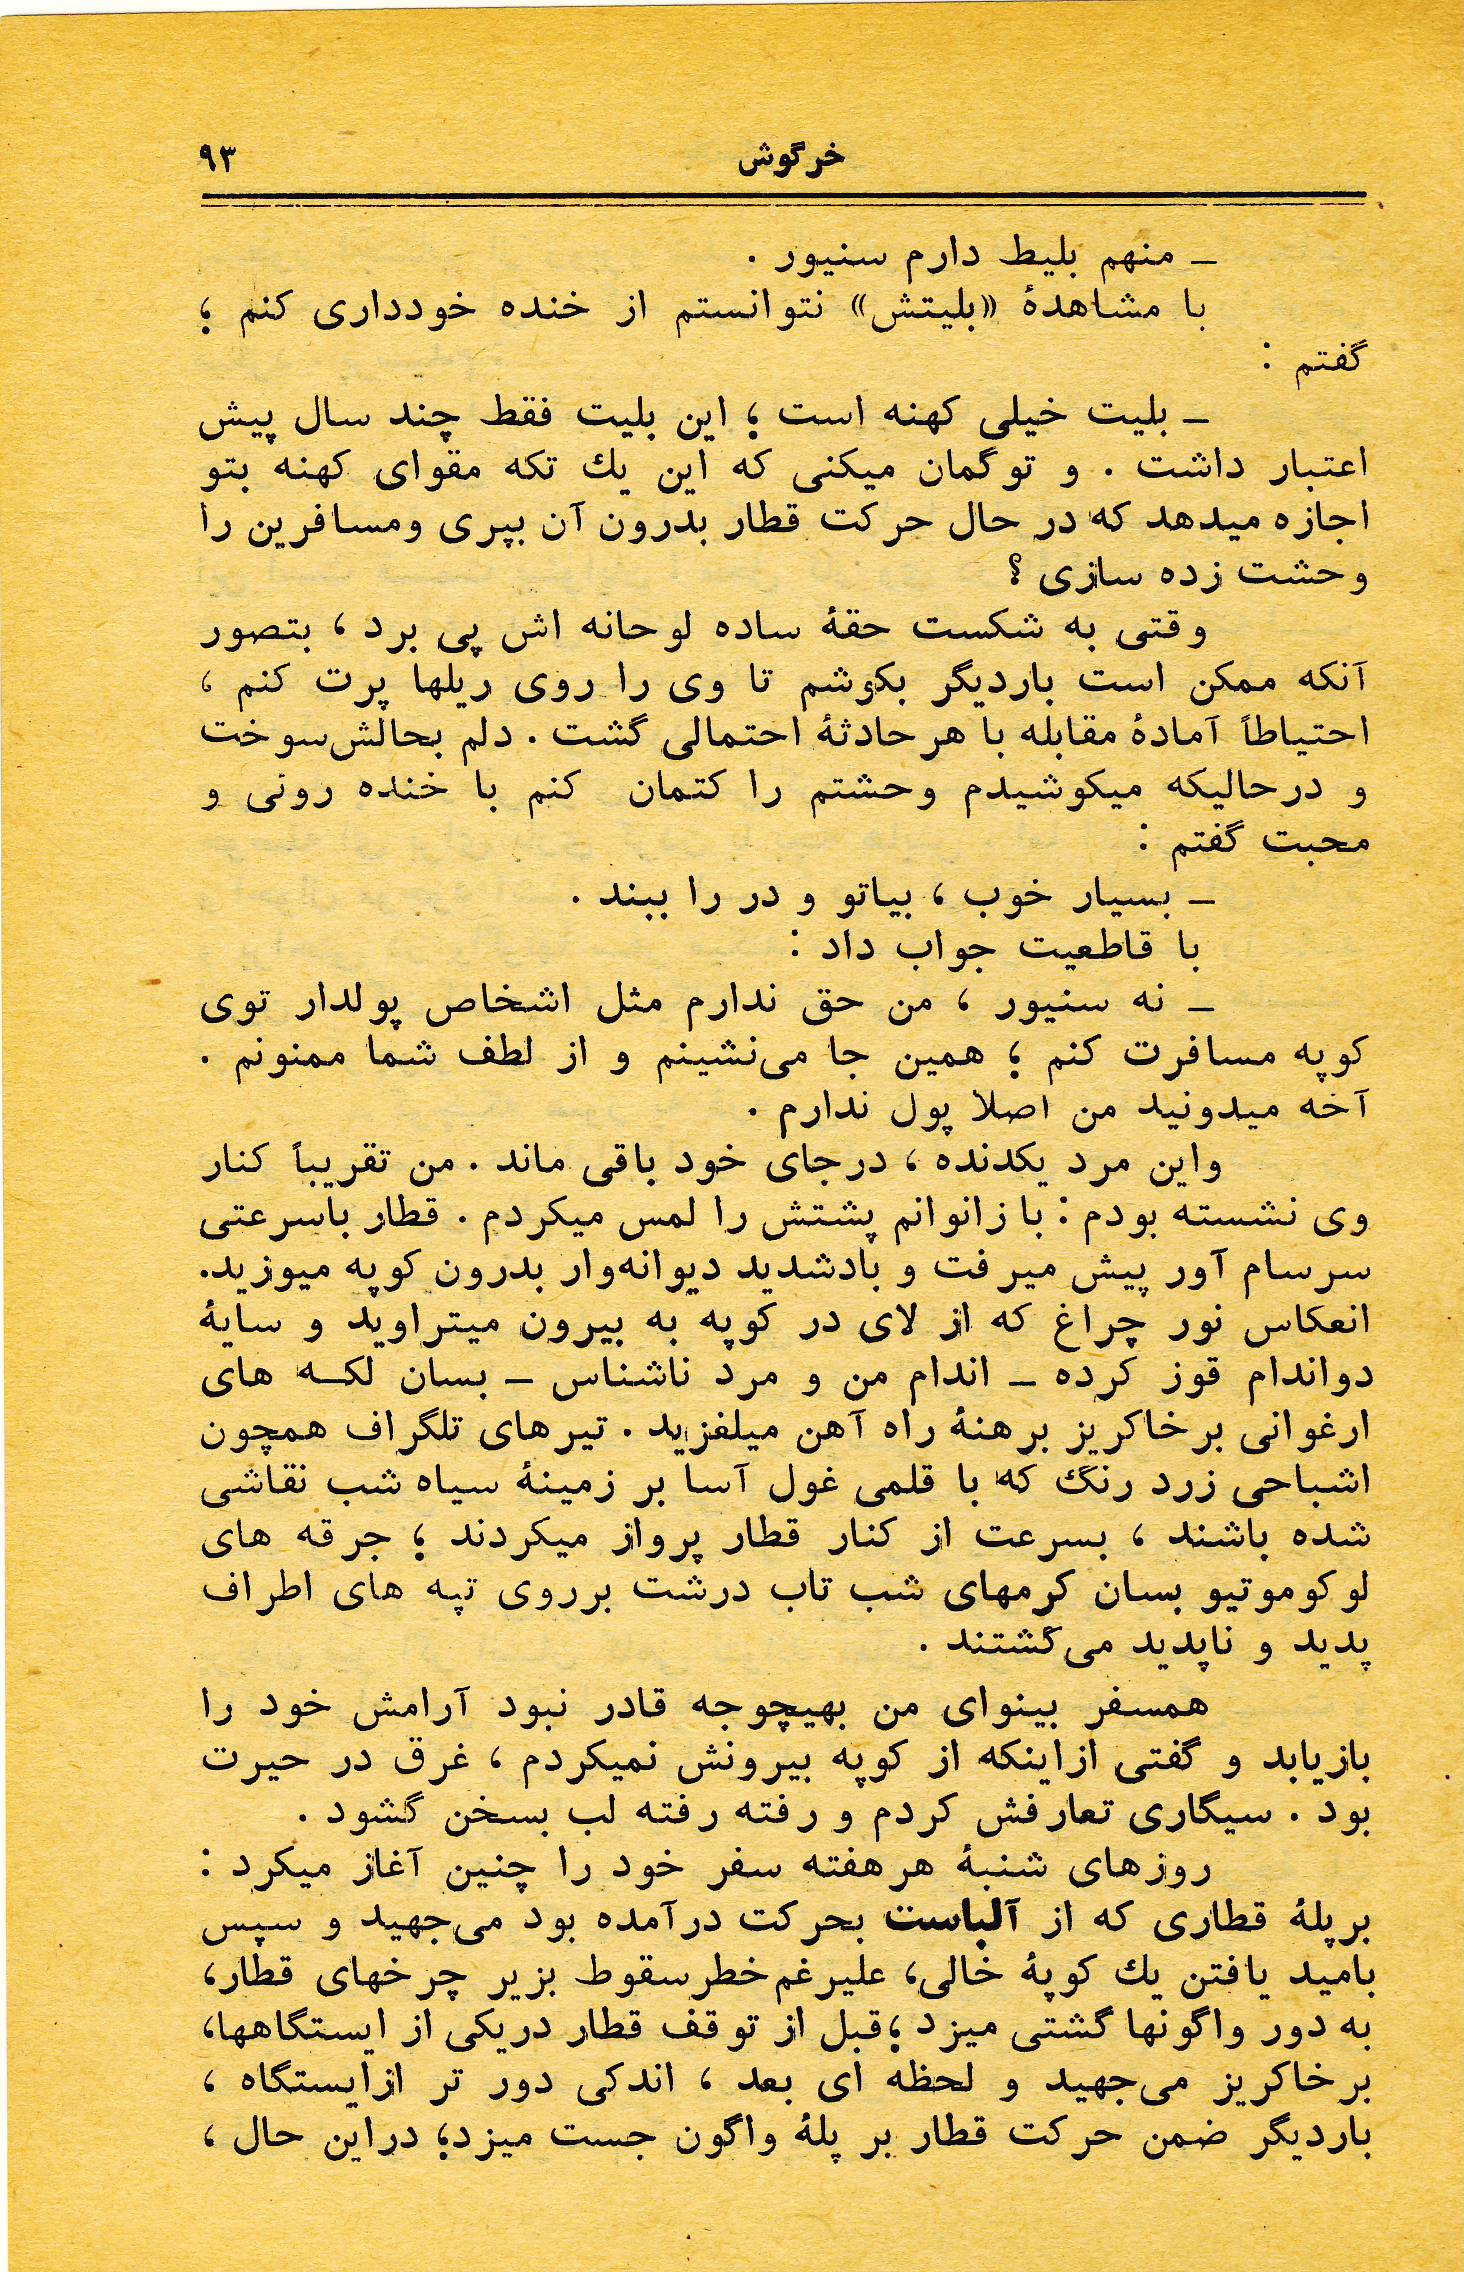 خرگوش ۹۳
ـ منهم بلیط دارم سنیور .
با مشاهدهٔ «بلیتش» نتوانستم از خنده خودداری کنم ؛
گفتم :
ـ بلیت خیلی کهنه است ؛ این بلیت فقط چند سال پیش
اعتبار داشت . و تو گمان میکنی که این یك تکه مقوای کهنه بتو
اجازه میدهد که در حال حرکت قطار بدرون آن بپری ومسافرین را
وحشت زده سازی ؟
وقتی به شکست حقهٔ ساده لوحانه اش پی برد ، بتصور
آنکه ممکن است باردیگر بکوشم تا وی را روی ریلها پرت کنم ،
احتیاطاً آمادهٔ مقابله با هرحادثهٔ احتمالی گشت . دلم بحالش‌سوخت
و درحالیکه میکوشیدم وحشتم را کتمان کنم با خنده روئی و
محبت گفتم :
ـ بسیار خوب ، بیاتو و در را ببند .
با قاطعیت جواب داد :
ـ نه سنیور ، من حق ندارم مثل اشخاص پولدار توی
کوپه مسافرت کنم ؛ همین جا می‌نشینم و از لطف شما ممنونم .
آخه میدونید من اصلا پول ندارم .
واین مرد یکدنده ، درجای خود باقی ماند . من تقریباً کنار
وی نشسته بودم : با زانوانم پشتش را لمس میکردم . قطار باسرعتی
سرسام آور پیش میرفت و بادشدید دیوانه‌وار بدرون کوپه میوزید.
انعکاس نور چراغ که از لای در کوپه به بیرون میتراوید و سایهٔ
دواندام قوز کرده ـ اندام من و مرد ناشناس ـ بسان لکـه های
ارغوانی برخاکریز برهنهٔ راه آهن میلغزید . تیرهای تلگراف همچون
اشباحی زرد رنگ که با قلمی غول آسا بر زمینهٔ سیاه شب نقاشی
شده باشند ، بسرعت از کنار قطار پرواز میکردند ؛ جرقه های
لوکوموتیو بسان کرمهای شب تاب درشت برروی تپه های اطراف
پدید و ناپدید می‌گشتند .
همسفر بینوای من بهیچوجه قادر نبود آرامش خود را
بازیابد و گفتی ازاینکه از کوپه بیرونش نمیکردم ، غرق در حیرت
بود . سیگاری تعارفش کردم و رفته رفته لب بسخن گشود .
روزهای شنبهٔ هرهفته سفر خود را چنین آغاز میکرد :
برپلهٔ قطاری که از آلباست بحرکت درآمده بود می‌جهید و سپس
بامید یافتن یك کوپهٔ خالی، علیرغم‌خطرسقوط بزیر چرخهای قطار،
به دور واگونها گشتی میزد ؛قبل از توقف قطار دریکی از ایستگاهها،
برخاکریز می‌جهید و لحظه ای بعد ، اندکی دور تر ازایستگاه ،
باردیگر ضمن حرکت قطار بر پلهٔ واگون جست میزد؛ دراین حال ،